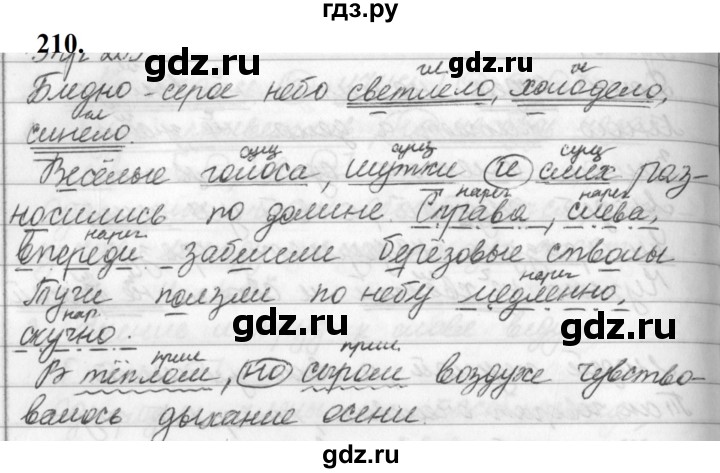 гдз.ру
210.
gdz.ru gdz.ru
гл гл
Бледно-серое небо светлело, холодело,
гл
синело.
сущ сущ сущ
Весёлые голоса, шутки и смех раз-
нареч нареч
носились по долине Справа, слева,
нареч
впереди забелели берёзовые стволы
нареч
Тучи ползли по небу медленно,
нар.
скучно.
gdz.ru gdz.ru
прил прил.
В тёплом, но сыром воздухе чувство-
валось дыхание осени.
gdz.ru gdz.ru